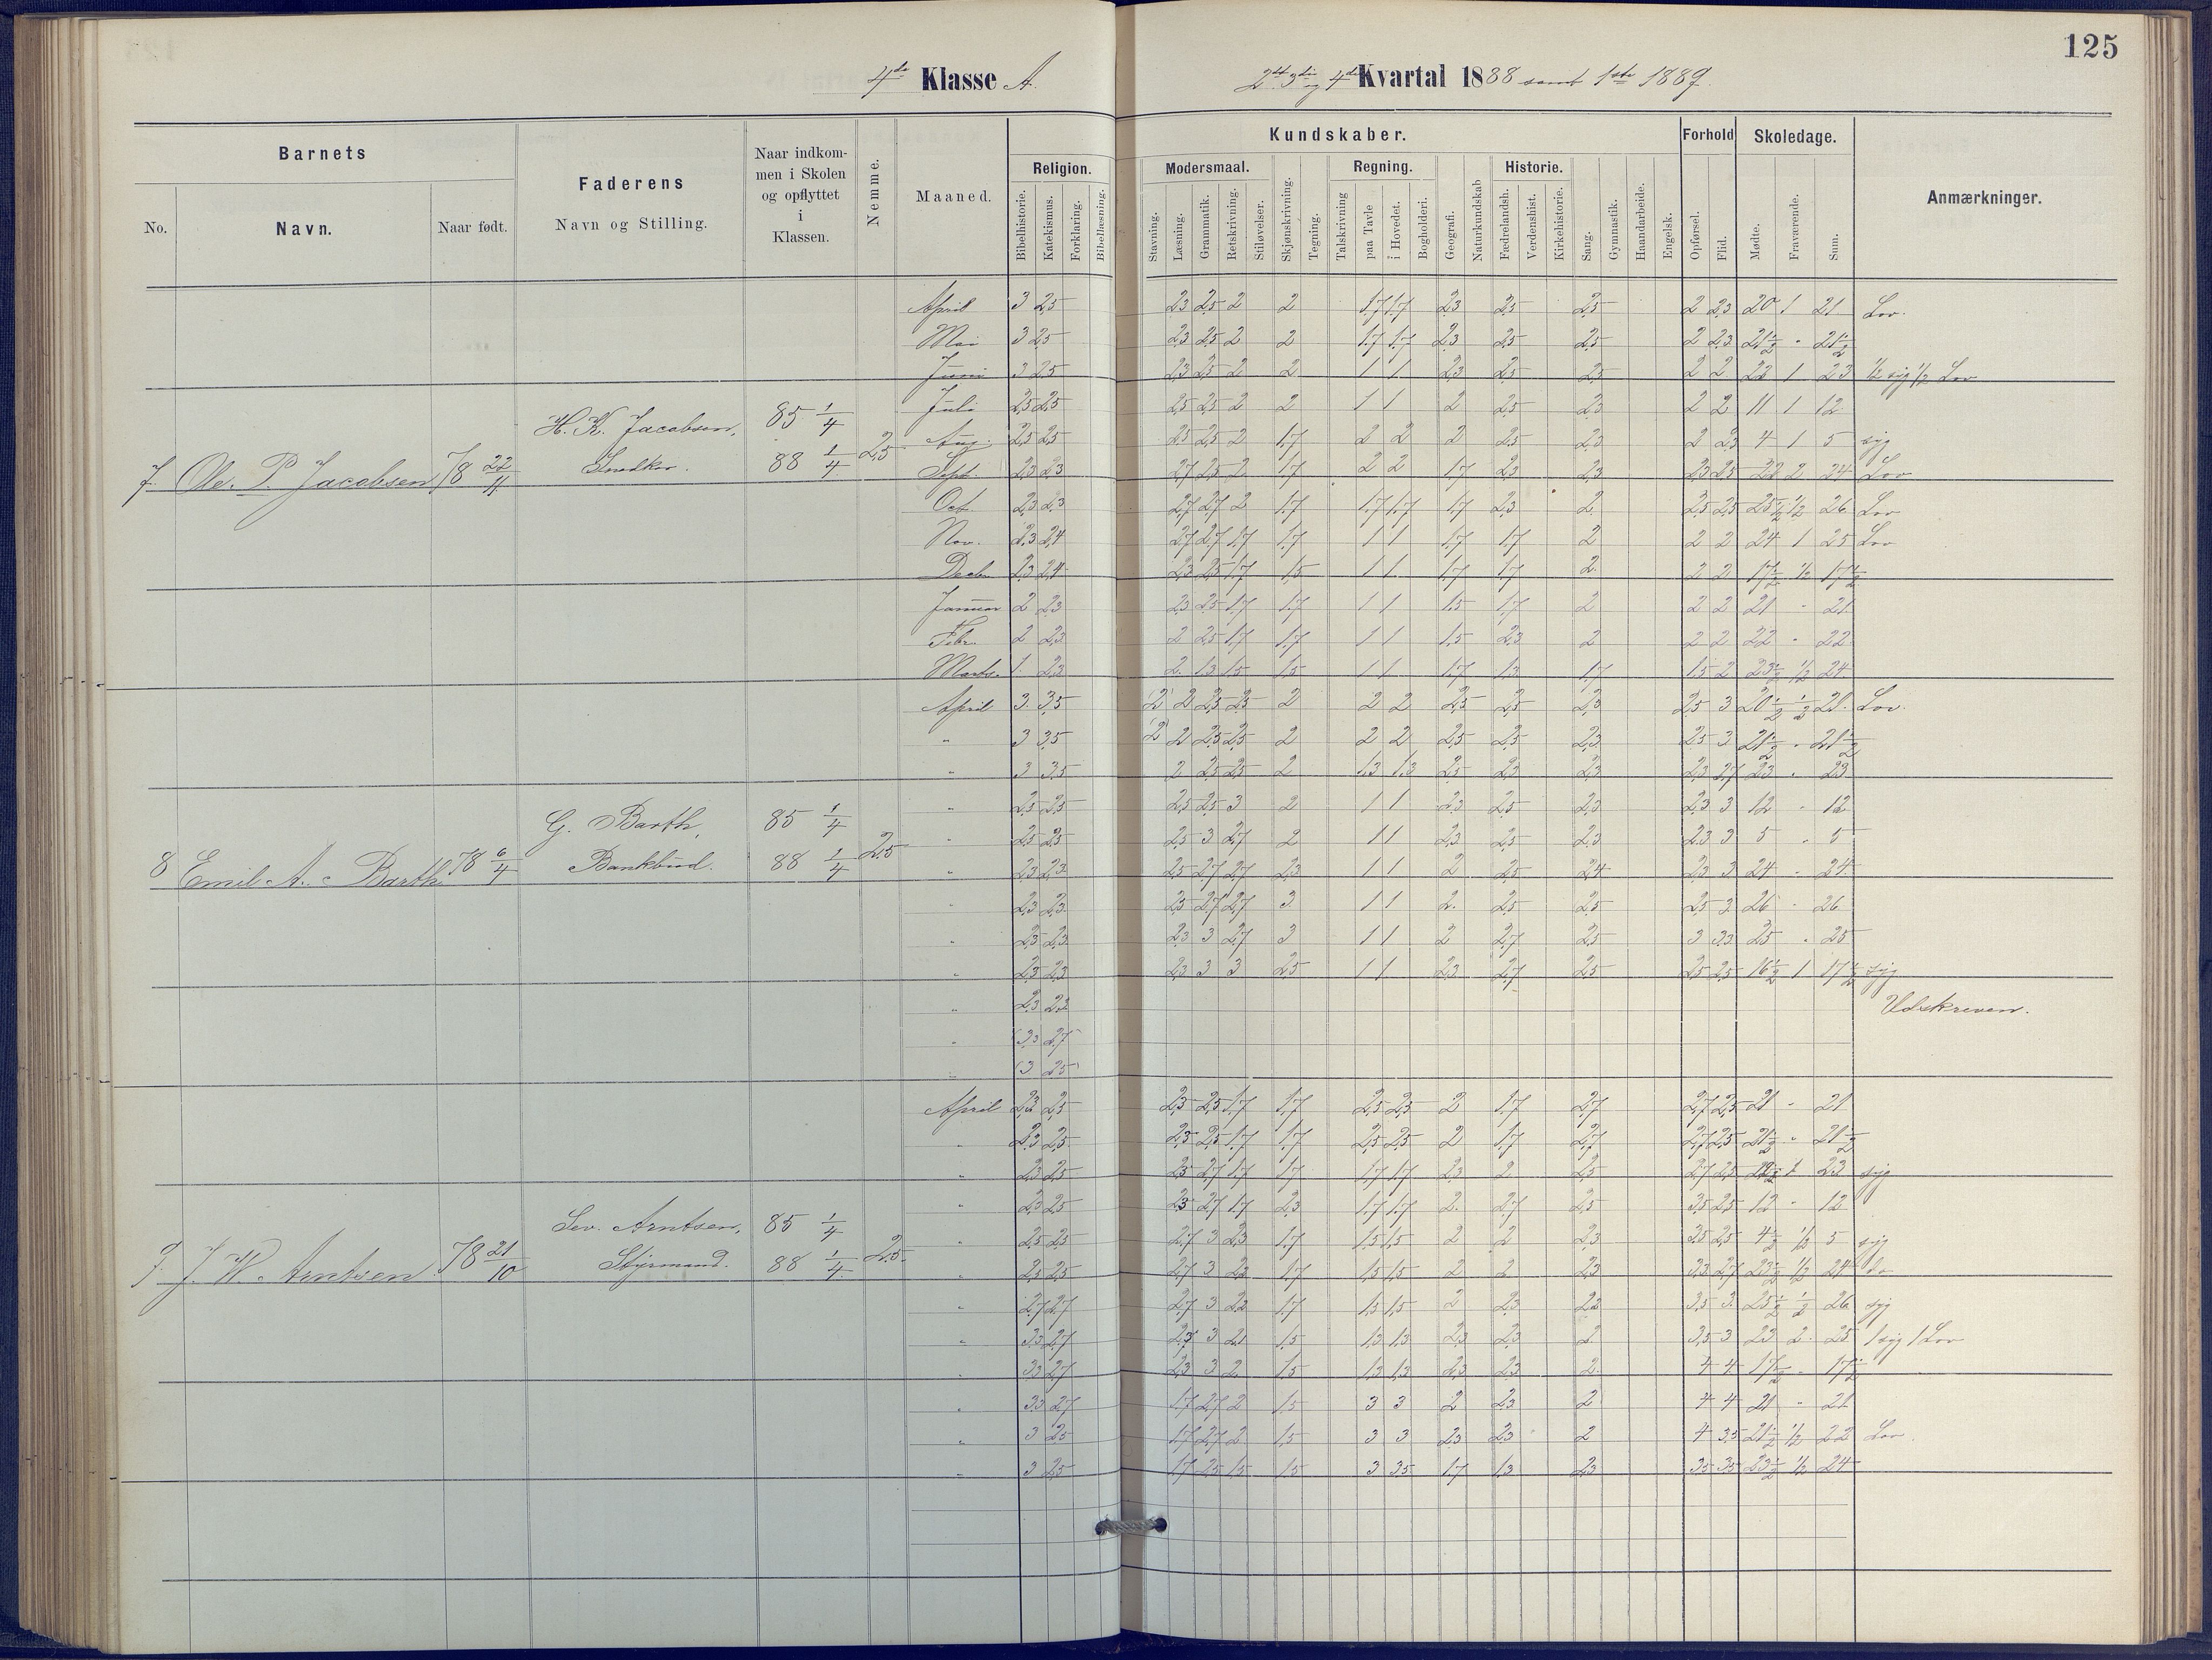 125
4de Klasse A.
2det 3die og 4de Kvartal 1888 samt 1ste 1889.
Barnets
Faderens
Navn og Stilling.
Naar indkommen i Skolen og opflyttet i Klassen.
Nemme.
Maaned.
Kundskaber.
Forhold
Skoledage.
Anmærkninger.
No.
Navn.
Naar født.
Religion.
Modersmaal.
Regning.
Historie.
Bibelhistorie.
Katekismus.
Forklaring.
Bibellæsning.
Stavning.
Læsning.
Grammatik.
Retskrivning.
Stiløvelser.
Skjønskrivning.
Tegning.
Talskrivning
paa Tavle
i Hovedet.
Bogholderi.
Geografi.
Naturkundskab
Fædrelandsh.
Verdenshist.
Kirkehistorie.
Sang.
Gymnastik.
Haandarbeide.
Engelsk.
Opførsel.
Flid.
Mødte.
Fraværende.
Sum.
7. Ole. P. Jacobsen 78 22/11 H. K. Jacobsen, Snedker. 85 1/4 88 1/4 2,5
April 3 2,5 2,3 2,5 2 2 1,7 1,7 2,3 2,5 2,5 2 2,3 20 1 21 Lov.
Mai 3 2,5 2,3 2,5 2 2 1,7 1,7 2,3 2,5 2,5 2 2,3 21 1/2 - 21 1/2
Juni 3 2,5 2,3 2,5 2 2 1 1 2,3 2,5 2,5 2 2 22 1 23 1/2 syg 1/2 Lov
Juli 2,5 2,5 2,5 2,5 2 2 1 1 2 2,5 2,3 2 2 11 1 12
Aug. 2,5 2,5 2,5 2,5 2 1,7 2 2 2 2,5 2,3 2 2,3 4 1 5 syg
Sept. 2,3 2,3 2,7 2,5 2 1,7 2 2 1,7 2,3 2,3 2,3 2,5 22 2 24 Lov
Oct. 2,3 2,3 2,7 2,7 2 1,7 1,7 1,7 1,7 2,3 2 2,5 2,5 25 1/2 1/2 26 Lov
Nov. 2,3 2,4 2,7 2,7 1,7 1,7 1 1 1,7 1,7 2 2 2 24 1 25 Lov
Decbr. 2,3 2,4 2,3 2,5 1,7 1,5 1 1 1,7 1,7 2 2 2 17 1/2 17 1/2
Januar 2 2,3 2,3 2,5 1,7 1,7 1 1 1,5 1,7 2 2 2 21 - 21
Febr. 2 2,3 2 2,5 1,7 1,7 1 1 1,5 2,3 2 2 2 22 - 22
Marts. 1. 2,3 2. 1,3 1,5 1,5 1 1 1,7 1,3 1,7 1,5 2 23 1/2 1/2 24
8 Emil A. Barth 78 6/4 G. Barth, Bankbud. 85 1/4 88 1/4 2,5
April 3. 3,5 2 2,5 2,5 2 2 2 2,5 2,5 2,3 2,5 3 20 1/2 1/2 21. Lov.
" 3 3,5 2 2,5 2,5 2 2 2 2,5 2,5 2,3 2,5 3 21 1/2 - 21 1/2
" 3 3,5 2 2,5 2,5 2 1,3 1,3 2,5 2,3 2,3 2,3 2,7 23 - 23
" 2,5 2,5 2,5 2,5 3 2 1 1 2,3 2,5 2,3 2,3 3 12 - 12
" 2,5 2,5 2,5 3 2,7 2 1 1 2,3 2,5 2,3 2,3 3 5 - 5
" 2,3 2,3 2,5 2,7 2,7 2,3 1 1 2 2,5 2,4 2,3 3 24 - 24
" 2,3 2,3 2,5 2,7 2,7 3 1 1 2. 2,5 2,5 2,5 3 26 - 26
" 2,5 2,3 2,3 3 2,7 3 1 1 2 2,7 2,5 3 3,3 25 - 25
" 2,5 2,3 2,3 3 3 2,5 1 1 2,3 2,7 2,5 2,5 2,5 16 1/2 1 17 1/2 syg
Udskreven.
9. J. W. Arntsen 78 21/10 Sev. Arntsen, Styrmand. 85 1/4 88 1/4 2,5.
April 2,3 2,5 2,5 2,5 1,7 1,7 2,5 2,5 2 1,7 2,7 2,7 2,5 21 - 21
" 2,3 2,5 2,5 2,5 1,7 1,7 2,5 2,5 2 1,7 2,7 2,7 2,5 21 1/2 - 21 1/2
" 2,3 2,5 2,5 2,7 1,7 1,7 1,7 1,7 2,3 2 2,5 2,7 2,5 23 syg
" 2,3 2,5 2,5 2,7 1,7 2,3 1,7 1,7 2. 2,7 2,5 3,5 2,5 12 - 12
" 2,5 2,5 2,7 3 2,3 1,7 1,5 1,5 2 2 2,3 3,5 2,5 4 1/2 1/2 5 syg
" 2,5 2,5 2,7 3 2,3 1,7 1,5 1,5 2 2 2,3 3,3 2,7 23 1/2 1/2 24 do
" 2,7 2,7 2,7 3 2,2 1,7 1,5 1,5 2 2,3 2,2 3,5 3. 25 1/2 1/2 26 syg
" 3,3 2,7 2,3 3 2,1 1,5 1,3 1,3 2,3 2,3 2 3,5 3 23 2. 25 1 syg 1 Lov
" 3,3 2,7 2,3 3 2. 1,5 1,3 1,3 2,3 2,3 2. 4 4 17 1/2 - 17 1/2
" 3,3 2,7 1,7 2,7 2 1,5 3 3 2 2,3 2 4 4 21 - 21
" 3 2,5 1,7 2,7 2 1,5 3 3 2,3 2,3 2 4 3,5 21 1/2 1/2 22 Lov.
" 3 2,5 1,7 2,5 1,5 1,5 3 3,5 1,7 1,3 2,3 3,5 3,5 23 1/2 1/2 24